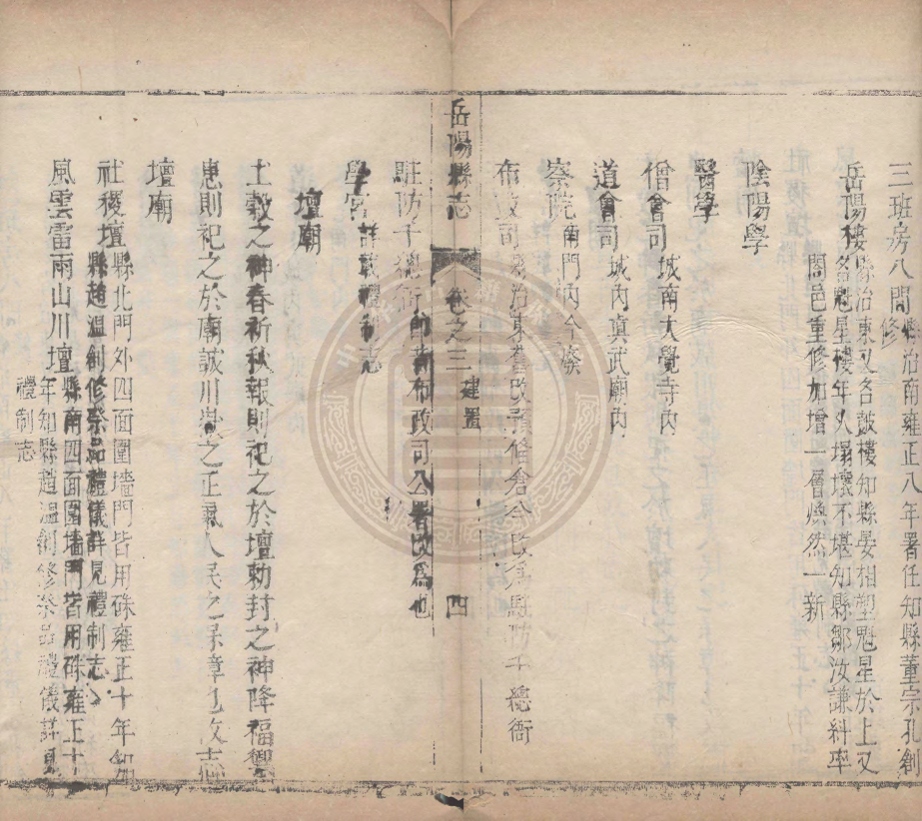 三班房八間縣治南雍正八年署任知縣董宗孔創
修
岳陽樓縣治東又名鼓樓知縣晏相塑魁星於上又
名魁星樓年久塌壞不堪知縣鄒汝謙糾率
閤邑重修加增一層煥然一新
陰陽學
醫學
僧會司城南大覺寺內
道會司城內真武廟內
察院南門內今廢
布政司縣治東舊改預備倉今改為駐防千總衙
岳陽縣志 卷之三 建置 四
駐防千總衙即舊布政司公署改為也
學宮詳載禮制志
壇廟
土穀之神春祈秋報則祀之於壇勅封之神降福禦
患則祀之於廟誠川嶽之正氣人民之保章也故志
壇廟
社稷壇縣北門外四面圍墻門皆用硃雍正十年知
縣趙溫創修祭品禮儀詳見禮制志
風雲雷雨山川壇縣南四面圍墻門皆用硃雍正十
年知縣趙溫創修祭品禮儀詳見
禮制志